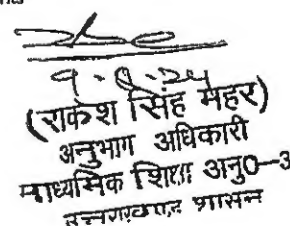 9-9-24
(राकेश सिंह मेहर)
अनुभाग अधिकारी
माध्यमिक शिक्षा अनु0-3
उत्तराखण्ड शासन